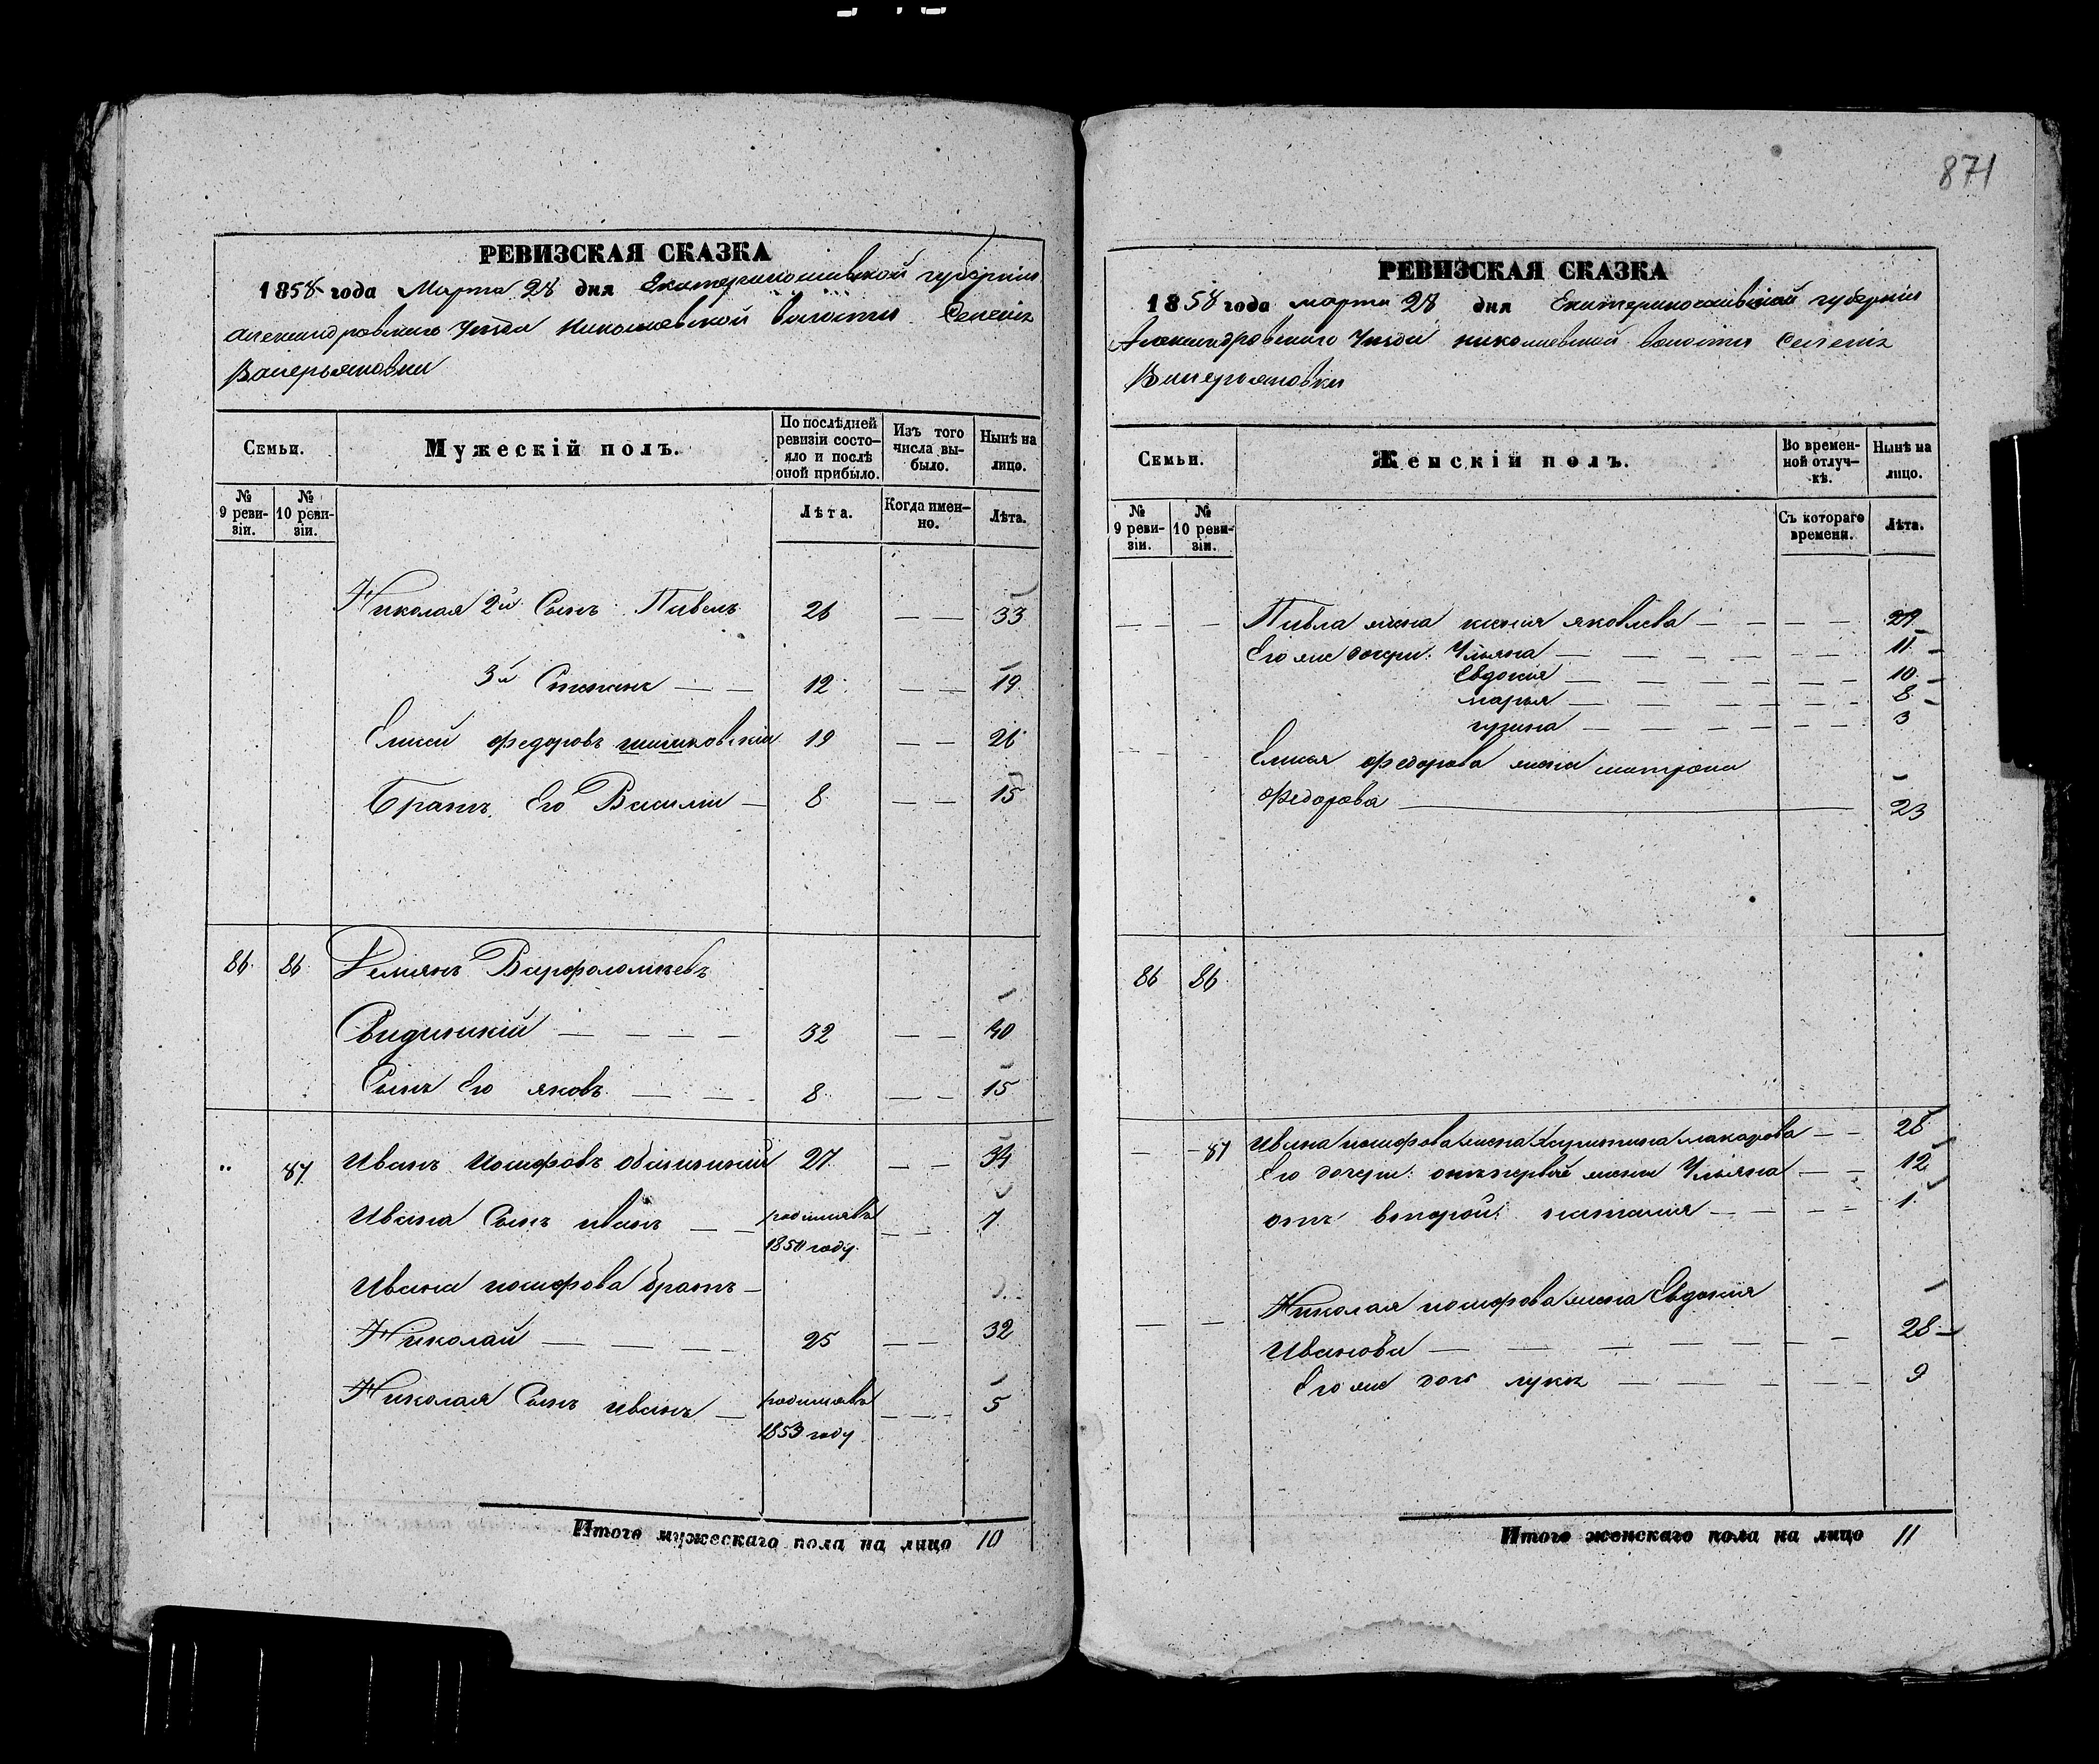 871
РЕВИЗСКАЯ СКАЗКА
1858 года Марта 28 дня Екатеринославской губернии
Александровского Уезда Николаевской волости Селенiя
Валерьяновки
Семьи.
Мужескій полъ.
По послѣдней ревизіи состо-
яло и послѣ
оной прибыло.
Изъ того
числа вы-
было.
Нынѣ на
лицо.
№
9 реви-
зіи.
№
10 реви-
зіи.
Лѣта.
Когда имен-
но.
Лѣта.
Николая 2й Сынъ Павелъ 26 — — 33
3й Степанъ — — 12 — — 19
Елисей Федоровъ 19 — — 26
Братъ Его Василии — 8 — — 15
86 86 Демянъ Варфоломѣевъ
— — — — 32 — — 40
Сынъ Его яковъ — — — 8 — — 15
" 87 Иванъ Иосифовъ 27 — — 34
Ивана Сынъ иванъ — — родился въ — — 7
1850 году
Ивана иосифова братъ —
Николай — — — — 25 — — 32
Николая Сынъ иванъ — родился въ — — — 5
1853 году
Итого мужескаго пола на лицо 10
РЕВИЗСКАЯ СКАЗКА
1858 года марта 28 дня Екатеринославской губернии
Александровского Уезда николаевской волости Селенiя
Валерьяновки
Семьи.
Женскій полъ.
Во времен-
ной отлуч-
кѣ.
Нынѣ на
лицо.
№
9 реви-
зіи.
№
10 реви-
зіи.
Съ котораго
времени.
Лѣта.
— — — Павла жена ксения яковлева — — — — — 29
Его же дочери: Ульяна — — — — — — 11
Евдокия — — — — — — 10
марья — — — — — — 8
— — — — — — 3
— — — Елисея федорова жена матрона
Федорова — — 23
86 86
— — 87 Ивана иосифова жена Харитина макарова — — 26
Его дочери: отъ первой жены Ульяна — — 12
отъ второй: наталия — — — — 1
— — Николая иосифова жена Евдокия
Иванова — — — — — — — 28
Его же дочь — — — — — — 9
Итого женскаго пола на лицо 11